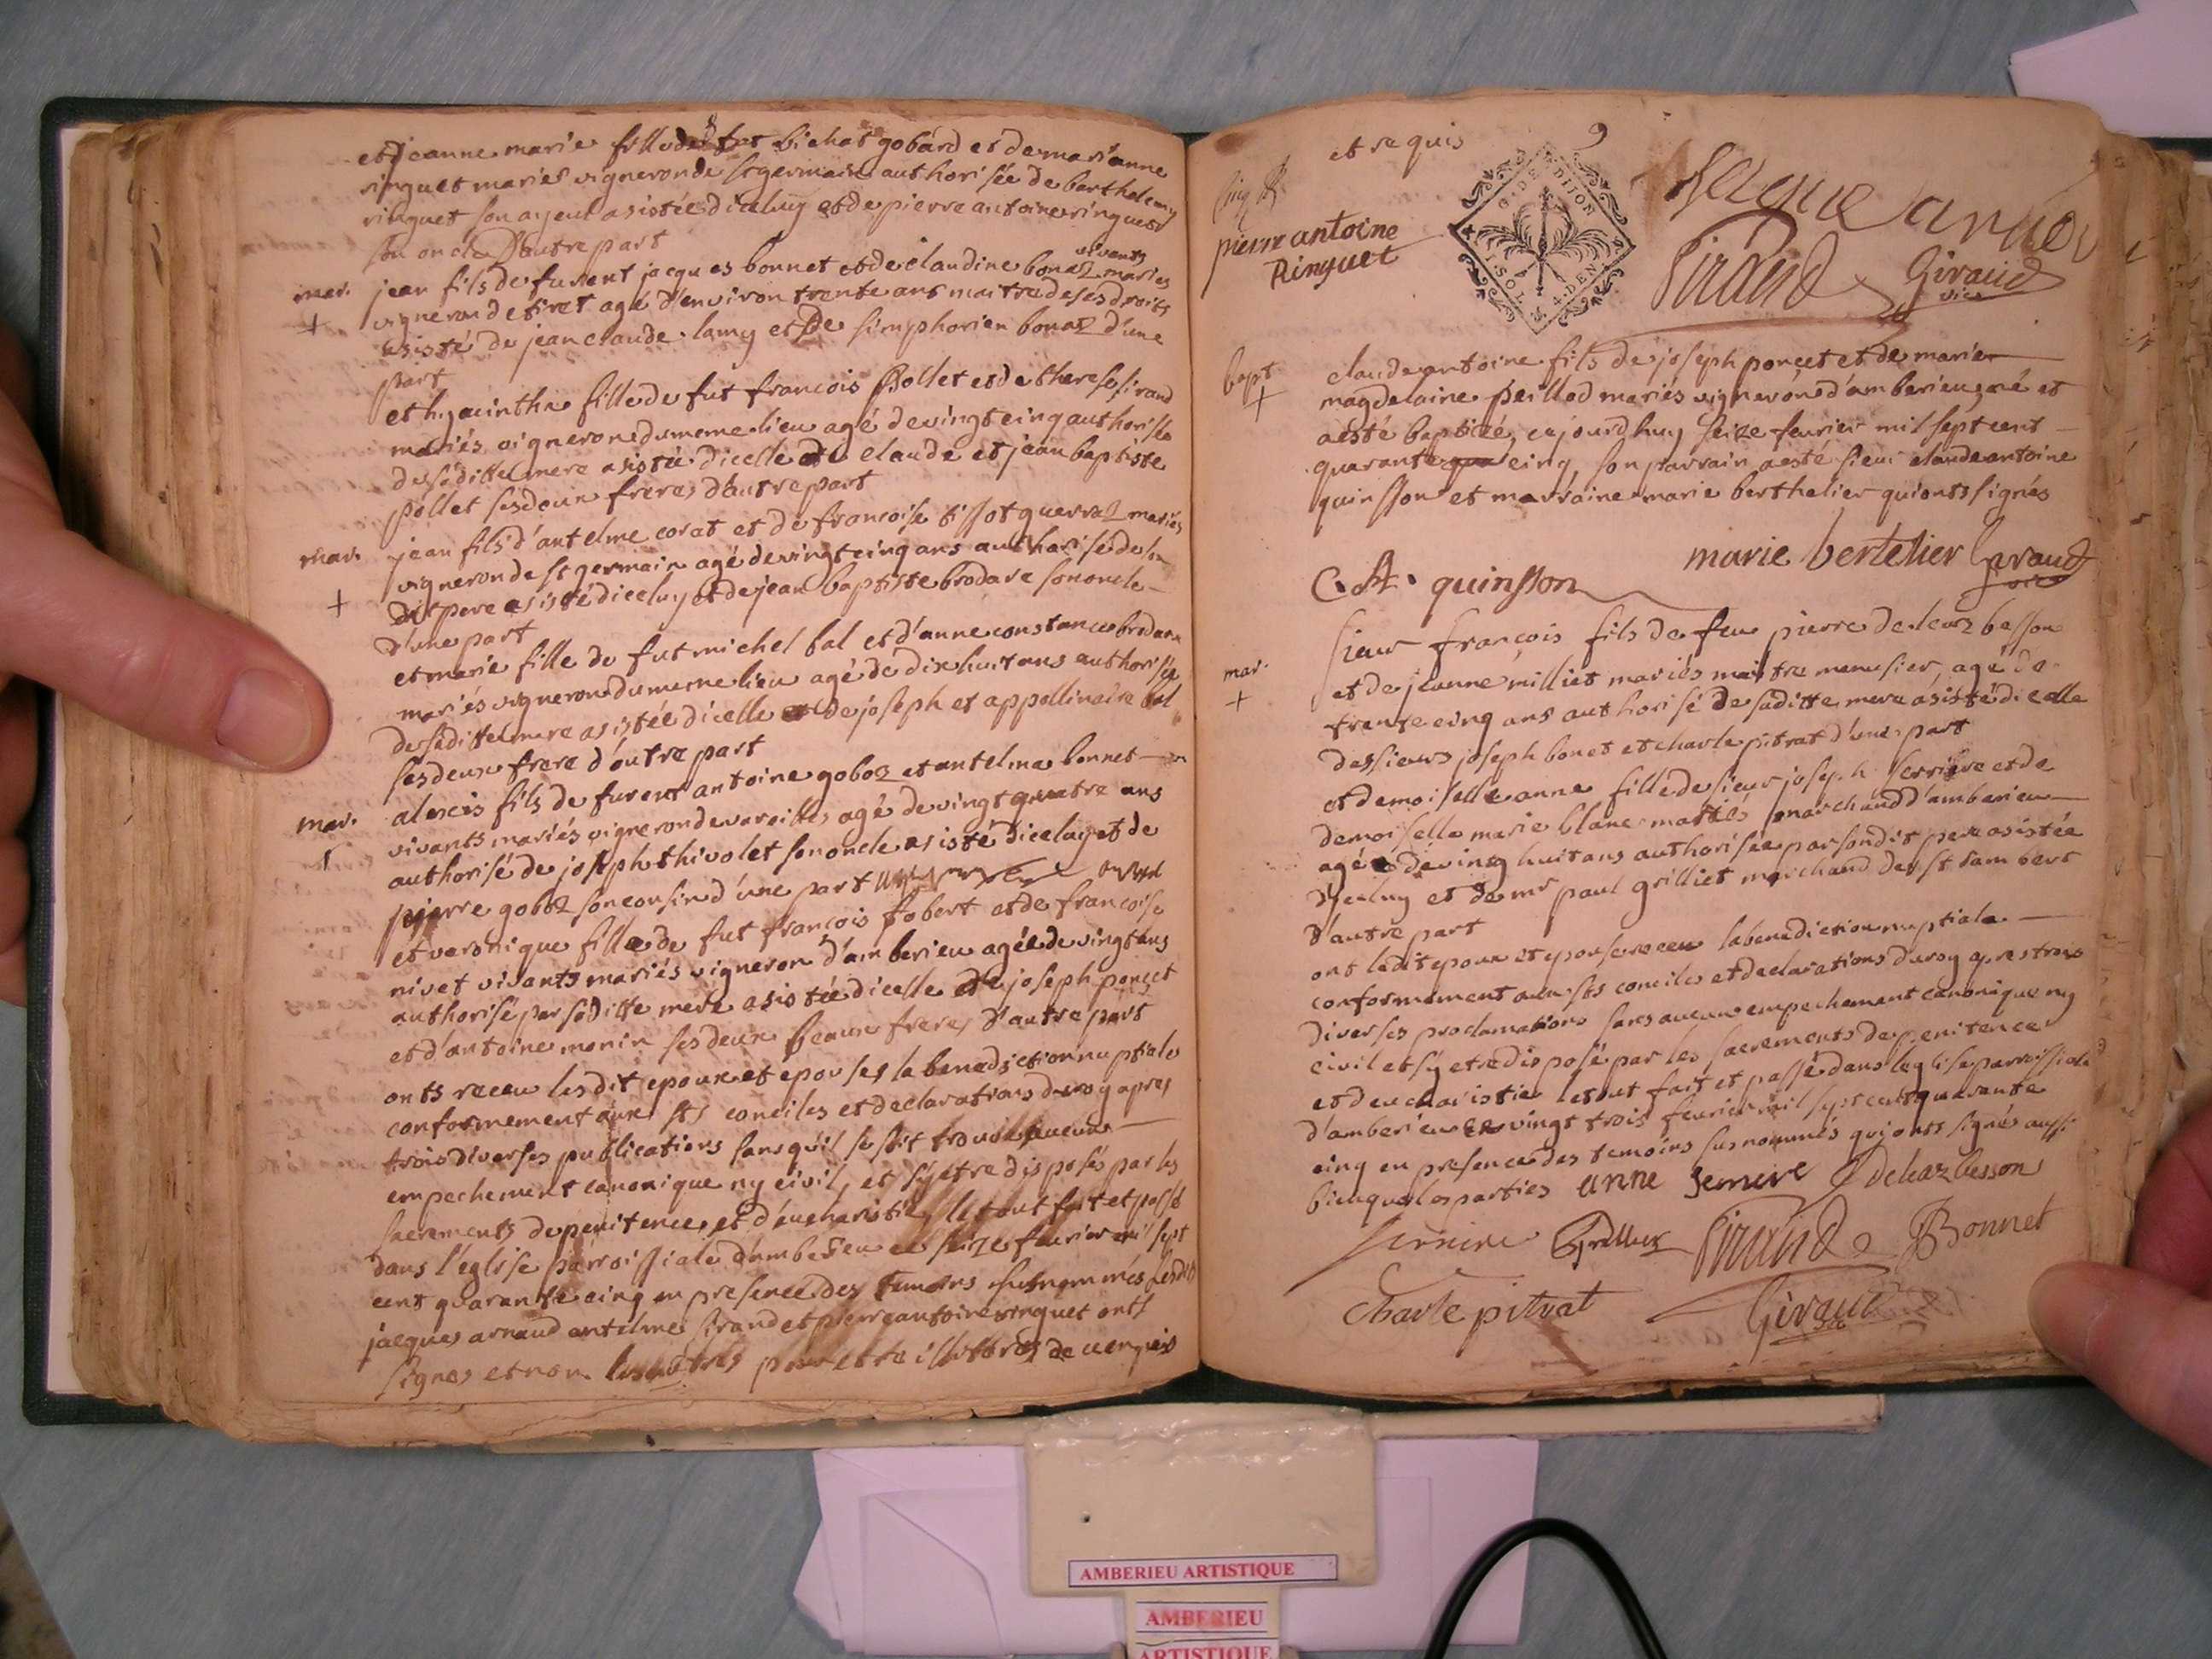 et jeanne marie fille de fut bichat gobard et de marianne
ringuet mariés vigneron de st germain authorisée de barthelemy
ringuet son ayeul asistée diceluy et de pierre antoine ringuet
son oncle d'autre part
mar. jean fils de furent jacques bonnet et de claudine bonaz vivants mariés
+ vigneron de tiret agé d'environ trente ans maitre de ses droits
asisté de jean claude lamy et de simphorien bonaz d'une
part
et hyacinthe fille de fut francois pollet et de therese sirand
mariés vigneron du meme lieu agé de vingt cinq authorisée
de sa ditte mere asistée dicelle et de claude et jean baptiste
pollet ses deux freres d'autre part
mar. jean fils d'antelme corat et de francoise tissot guerraz mariés
vigneron de st germain agé de vingt cinq ans authorisé de son
+ dit pere asisté diceluy et de jean baptiste brodare son oncle
d'une part
et marie fille de fut michel bal et d'anne constance brodare
mariés vigneron du meme lieu agé de dix huit ans authorisée
de sa ditte mere asistée dicelle et de joseph et appollinaire bal
ses deux frere d'autre part
mar. alexis fils de furent antoine goboz et antelma bonnet
vivants mariés vigneron de vareilles agé de vingt quatre ans
authorisé de joseph thivolet son oncle asisté diceluy et de
pierre goboz son cousin d'une part
et varonique fille de fut francois fobert et de francoise
nivet vivants mariés vigneron d'amberieu agée de vingt ans
authorisé par sa ditte mere asistée dicelle et de joseph poncet
et d'antoine monin ses deux beaux freres d'autre part
onts receu les dit epoux et epouses la benediction nuptiale
conformement aux sts conciles et declarations du roy apres
trois diverses publications sans qu'il se soit trouvé aucun
empechement canonique ny civil, et s'y etre disposés par les
sacrements de penitence et d'eucharistie, le tout fait et passé
dans l'église parroissiale d'amberieu ce seize fevrier mil sept
cent quarante cinq en presence des temoins susnommés lesdits
jacques arnaud antelme sirand et pierre antoine ringuet onts
signes et non les autres pour etre illettres de ce enquis
et requis
pierre antoine
Ringuet
G. DE DIJON
4. DEN.
Sirand
Giraud
vic
bapt claude antoine fils de joseph poncet et de marie
+ magdelaine peillod mariés vigneron d'amberieu né et
a esté baptizé, cejourdhuy seize fevrier mil sept cent
quarante cinq, son parrain a esté sieur claude antoine
quinsson et marraine marie berthelier qui onts signés
marie bertelier Giraud
vic
C. A. quinsson
Sieur françois fils de feu pierre deleaz besson
mar. et de jeanne milliet mariés maitre menusier, agé de
+ trente cinq ans authorisé de sa ditte mere asisté dicelle
des sieurs joseph bonet et charle pitrat d'une part
et demoiselle anne fille de sieur joseph serriere et de
demoiselle marie blanc mariés marchand d'amberieu
agée de vingt huit ans authorisée par son dit pere asistée
d'iceluy et de mr paul grilliet marchand de st rambert
d'autre part
ont le dit epoux et epouse receu la benediction nuptiale
conformement aux sts conciles et declarations du roy apres trois
diverses proclamations sans aucun empechement canonique ny
civil et s'y etre disposé par les sacrements de penitence
et d'eucharistie le tout fait et passé dans leglise parroissiale
d'amberieu ce vingt trois fevrier mil sept cent quarante
cinq en presence des temoins susnommés qui onts signés aussi
bien que les parties anne serriere f deleaz besson
serriere Grilliet Sirand J Bonnet
Charle pitrat Giraud
AMBERIEU ARTISTIQUE
AMBERIEU
ARTISTIQUE